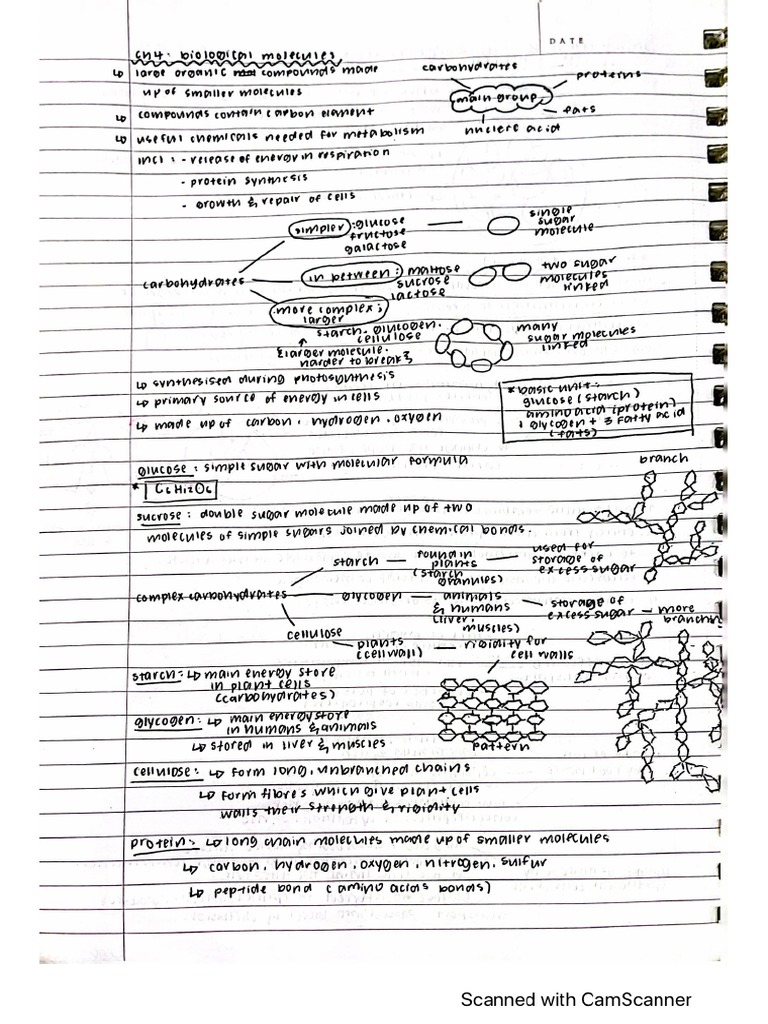 DATE
ch4: biological molecules
↳ large organic compounds made
up of smaller molecules
↳ compounds contain carbon element
↳ useful chemicals needed for metabolism
incl : - release of energy in respiration
- protein synthesis
- growth & repair of cells
carbohydrates
proteins
main group
fats
nucleic acid
simpler : glucose
fructose
galactose
single
sugar
molecule
carbohydrates
in between : maltose
sucrose
lactose
two sugar
molecules
linked
more complex ;
larger
starch. glucogen.
cellulose
many
sugar molecules
linked
& larger molecule.
harder to break &
↳ synthesised during photosynthesis
↳ primary source of energy in cells
↳ made up of carbon, hydrogen, oxygen
* basic unit :
glucose (starch)
amino acid (protein)
1 glycogen + 3 fatty acid
(fats)
glucose : simple sugar with molecular formula
* C6H12O6
branch
sucrose : double sugar molecule made up of two
molecules of simple sugars joined by chemical bonds.
complex carbohydrates
starch — found in
plants
(starch
granules)
used for
storage of
excess sugar
glycogen — animals
& humans
(liver,
muscles)
storage of
excess sugar — more
branchin
cellulose
plants
(cell wall)
rigidity for
cell walls
starch : ↳ main energy store
in plant cells
(carbohydrates)
glycogen : ↳ main energy store
in humans & animals
↳ stored in liver & muscles
pattern
cellulose : ↳ form long, unbranched chains
↳ form fibres which give plant cells
walls their strength & rigidity
protein : ↳ long chain molecules made up of smaller molecules
↳ carbon, hydrogen, oxygen, nitrogen, sulfur
↳ peptide bond (amino acids bonds)
Scanned with CamScanner